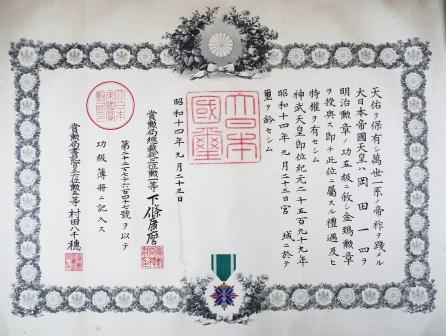 天佑ヲ保有シ萬世一系ノ帝祚ヲ踐メル
大日本帝國天皇ハ岡田一四ヲ
明治勲章ノ功五級ニ敍シ金鵄勲章
ヲ授與ス即チ此位ニ屬スル禮遇及ヒ
特權ヲ有セシム
神武天皇即位紀元二千五百九十九年
昭和十四年 月二十三日宮城ニ於テ
璽ヲ鈐セシム
大日本
國璽
昭和十四年 月二十三日
賞勲局總裁 位勲一等下條康麿
第 號ヲ以テ
功級簿冊ニ記入ス
賞勲局書記官 位勲 等村田八千穂